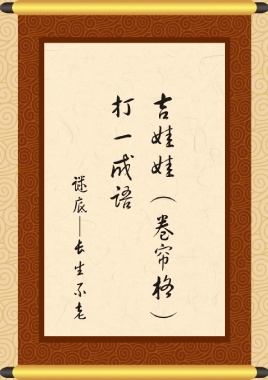 吉娃娃（卷帘格）
打一成语
谜底——长生不老